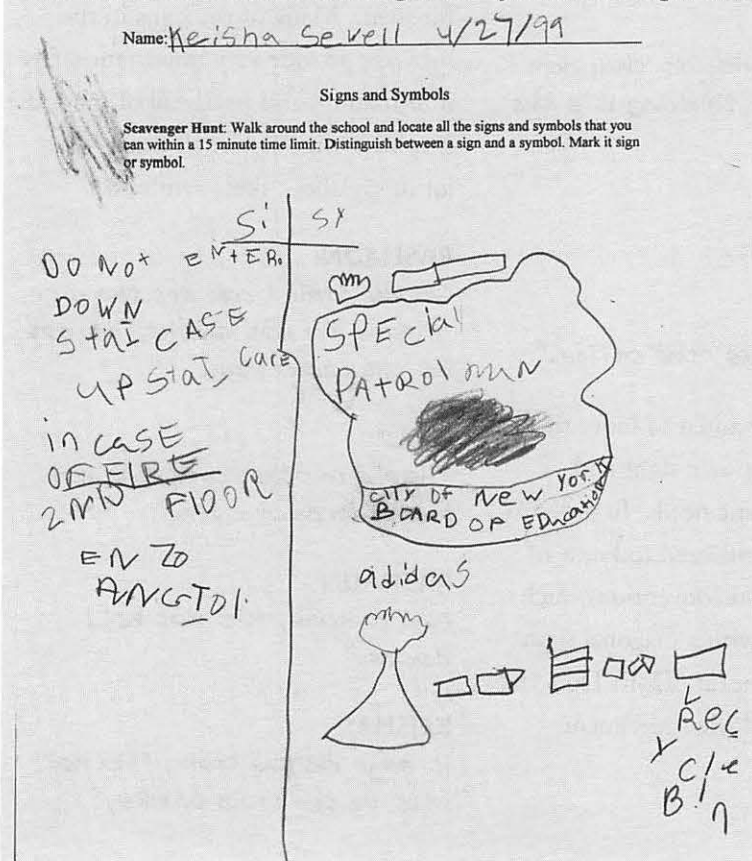 Name: Keisha Sevell 4/27/99
Signs and Symbols
Scavenger Hunt: Walk around the school and locate all the signs and symbols that you
can within a 15 minute time limit. Distinguish between a sign and a symbol. Mark it sign
or symbol.
Si
DO NOt ENtER.
DOWN
StaI CASE
UP StaI, Care
in CASE
OF FIRE
2 MN FlOOR
EN ZO
ANGTOl.
Sy
SPEcial
PAtROl mAN
City OF New York
BOARD OF EDucation
adidas
REC
Y
Cle
Bin